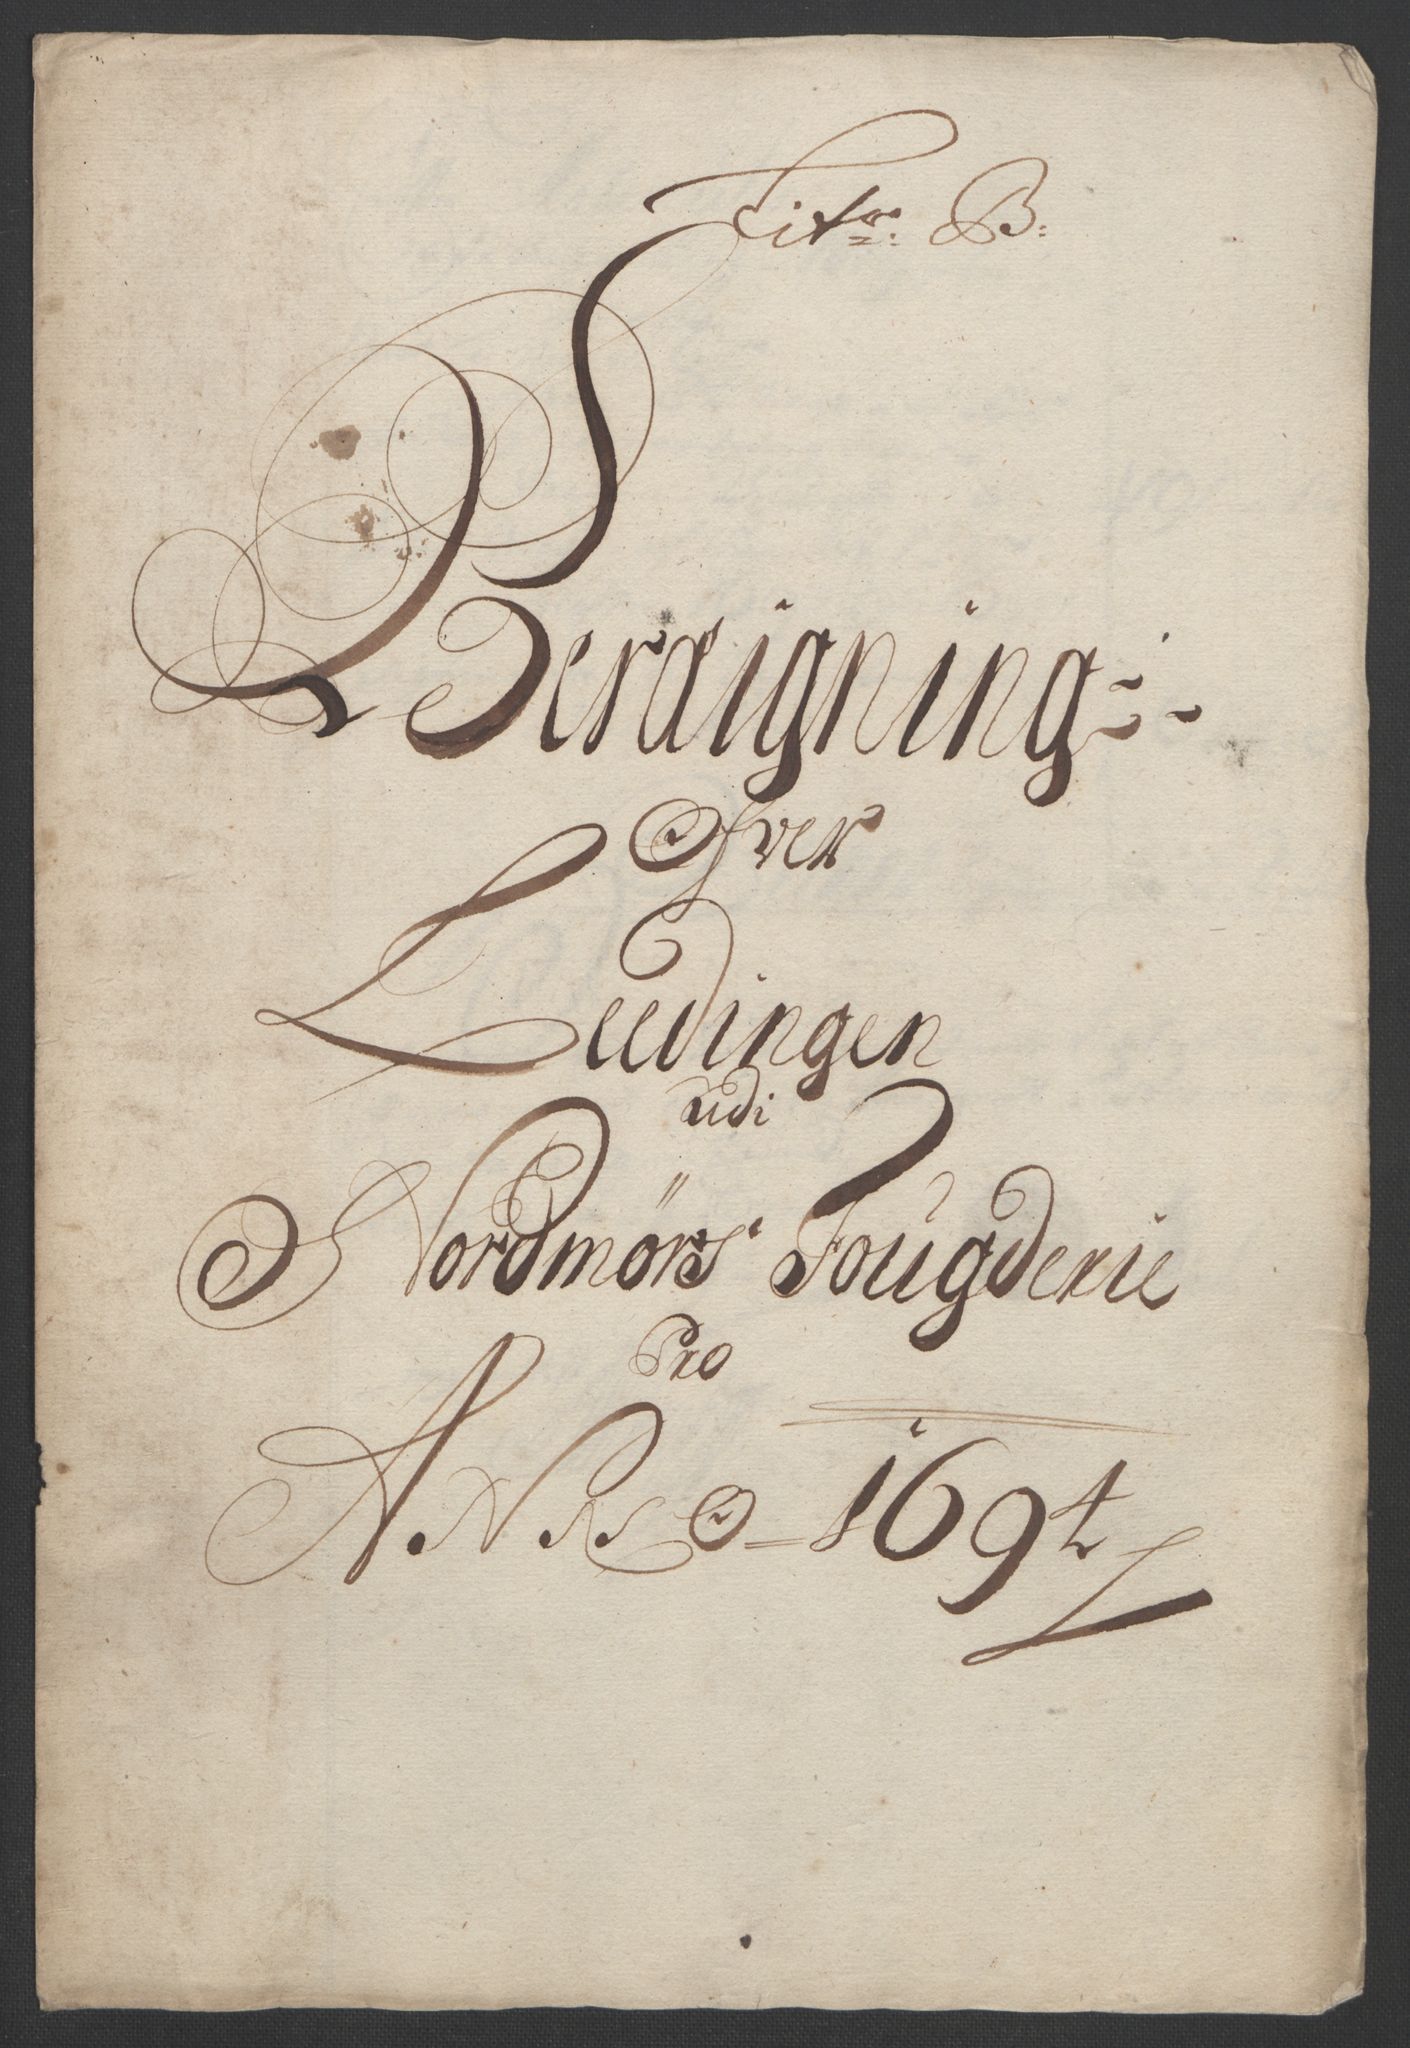 Litr: B:
Beraigning:-
Ofver
Leedingen
udi
Nordmörs Fougderie
Pro
ANNO 1694